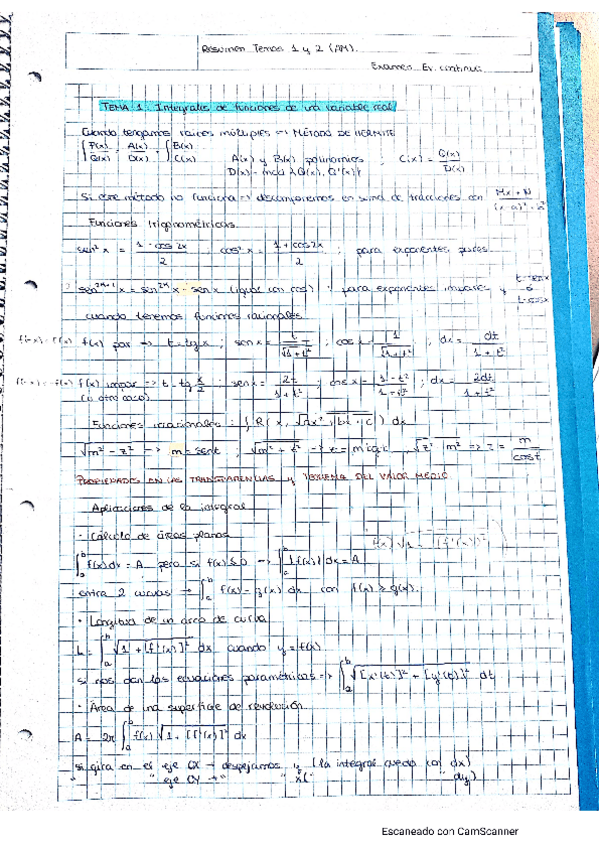 Resumen Temas 1 y 2 (AM).
Examen Ev. continua
TEMA 1. Integrales de funciones de una variable real
Cuando tengamos raíces múltiples → MÉTODO DE HERMITE
∫ P(x)/Q(x) = A(x)/D(x) + ∫ B(x)/C(x)
A(x) y B(x) polinomios ; C(x) = Q(x)/D(x)
D(x) = mcd {Q(x), Q'(x)}
Si este método no funciona → descomponemos en suma de fracciones con
Funciones trigonométricas
sen² x = (1 - cos 2x)/2 ; cos² x = (1 + cos 2x)/2 ; para exponentes pares
sen²ⁿ⁺¹ x = sen²ⁿ x · sen x (igual con cos) : para exponentes impares y
t = sen x
t = cos x
cuando tenemos funciones racionales
f(x) par → t = tg x ; sen x = t/√(1+t²) ; cos x = 1/√(1+t²) ; dx = dt/(1+t²)
f(x) impar → t = tg x/2 : sen x = 2t/(1+t²) ; cos x = (1-t²)/(1+t²) ; dx = 2dt/(1+t²)
(u otro caso)
Funciones irracionales : ∫ R(x, √(ax² + bx + c)) dx
PROPIEDADES EN LAS TRANSPARENCIAS y TEOREMA DEL VALOR MEDIO
Aplicaciones de la integral
· Cálculo de áreas planas
∫ₐᵇ f(x) dx = A pero si f(x) ≤ 0 → ∫ₐᵇ |f(x)| dx = A
entre 2 curvas → ∫ₐᵇ f(x) - g(x) dx con f(x) ≥ g(x).
· Longitud de un arco de curva
L = ∫ₐᵇ √(1 + [f'(x)]²) dx cuando y = f(x)
si nos dan las ecuaciones paramétricas → ∫ₐᵇ √([x'(t)]² + [y'(t)]²) dt
· Área de una superficie de revolución
A = 2π ∫ₐᵇ f(x) √(1 + [f'(x)]²) dx
si gira en el eje OX → despejamos y (la integral queda con dx)
" " eje OY → " " x ( " " dy)
Escaneado con CamScanner